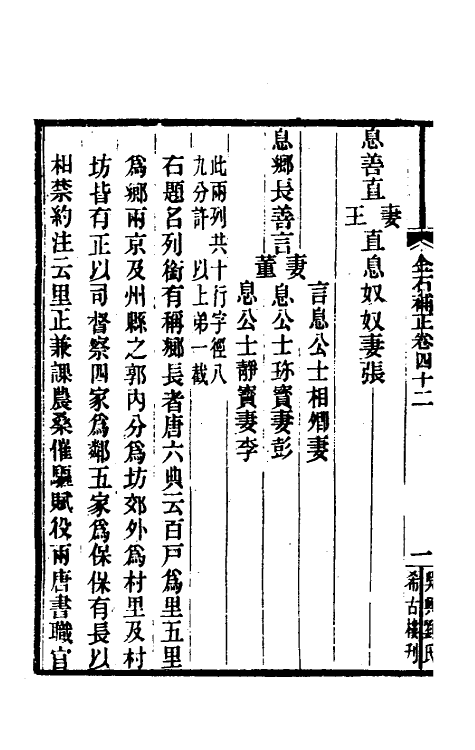 金石補正卷四十二 一 吳興劉氏
希古樓刊
息善直 妻王 直息奴奴妻張
言息公士相卿妻
息鄉長善言 妻董 息公士珎寶妻彭
息公士靜寶妻李
此兩列共十行字徑八
九分許 以上弟一截
右題名列銜有稱鄉長者唐六典云百戶爲里五里
爲鄉兩京及州縣之郭內分爲坊郊外爲村里及村
坊皆有正以司督察四家爲鄰五家爲保保有長以
相禁約注云里正兼課農桑催驅賦役兩唐書職官